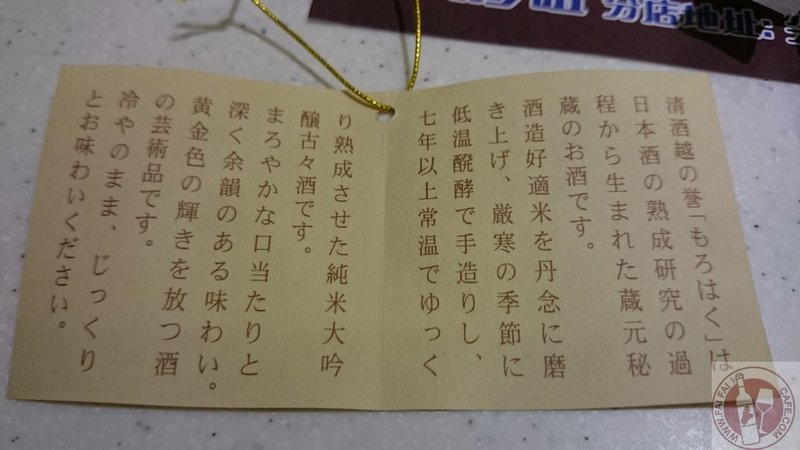 清酒越の誉「もろはく」は
日本酒の熟成研究の過
程から生まれた蔵元秘
蔵のお酒です。
酒造好適米を丹念に磨
き上げ、厳寒の季節に
低温醗酵で手造りし、
七年以上常温でゆっく
り熟成させた純米大吟
醸古々酒です。
まろやかな口当たりと
深く余韻のある味わい。
黄金色の輝きを放つ酒
の芸術品です。
冷やのまま、じっくり
とお味わいください。
分店地址:
WWW.FAIFAICAFE.COM